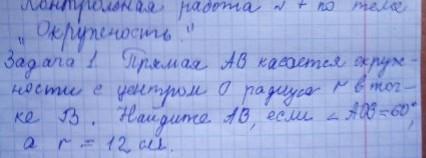 Контрольная работа № 4 по теме
„Окружность."
Задача 1. Прямая АВ касается окруж-
ности с центром О радиуса r в точ-
ке В. Найдите АВ, если ∠АОВ=60°,
а r = 12 см.